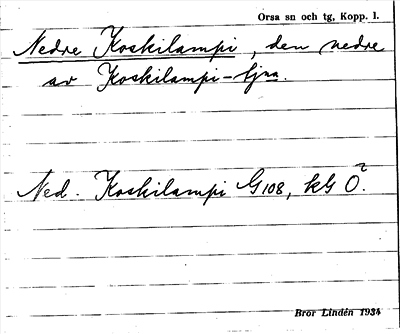 Orsa sn och tg, Kopp. l.
Nedre Koskilampi, den nedre
av Koskilampi-tjna.
Ned. Koskilampi G108, kG Ö?
Bror Lindén 1934